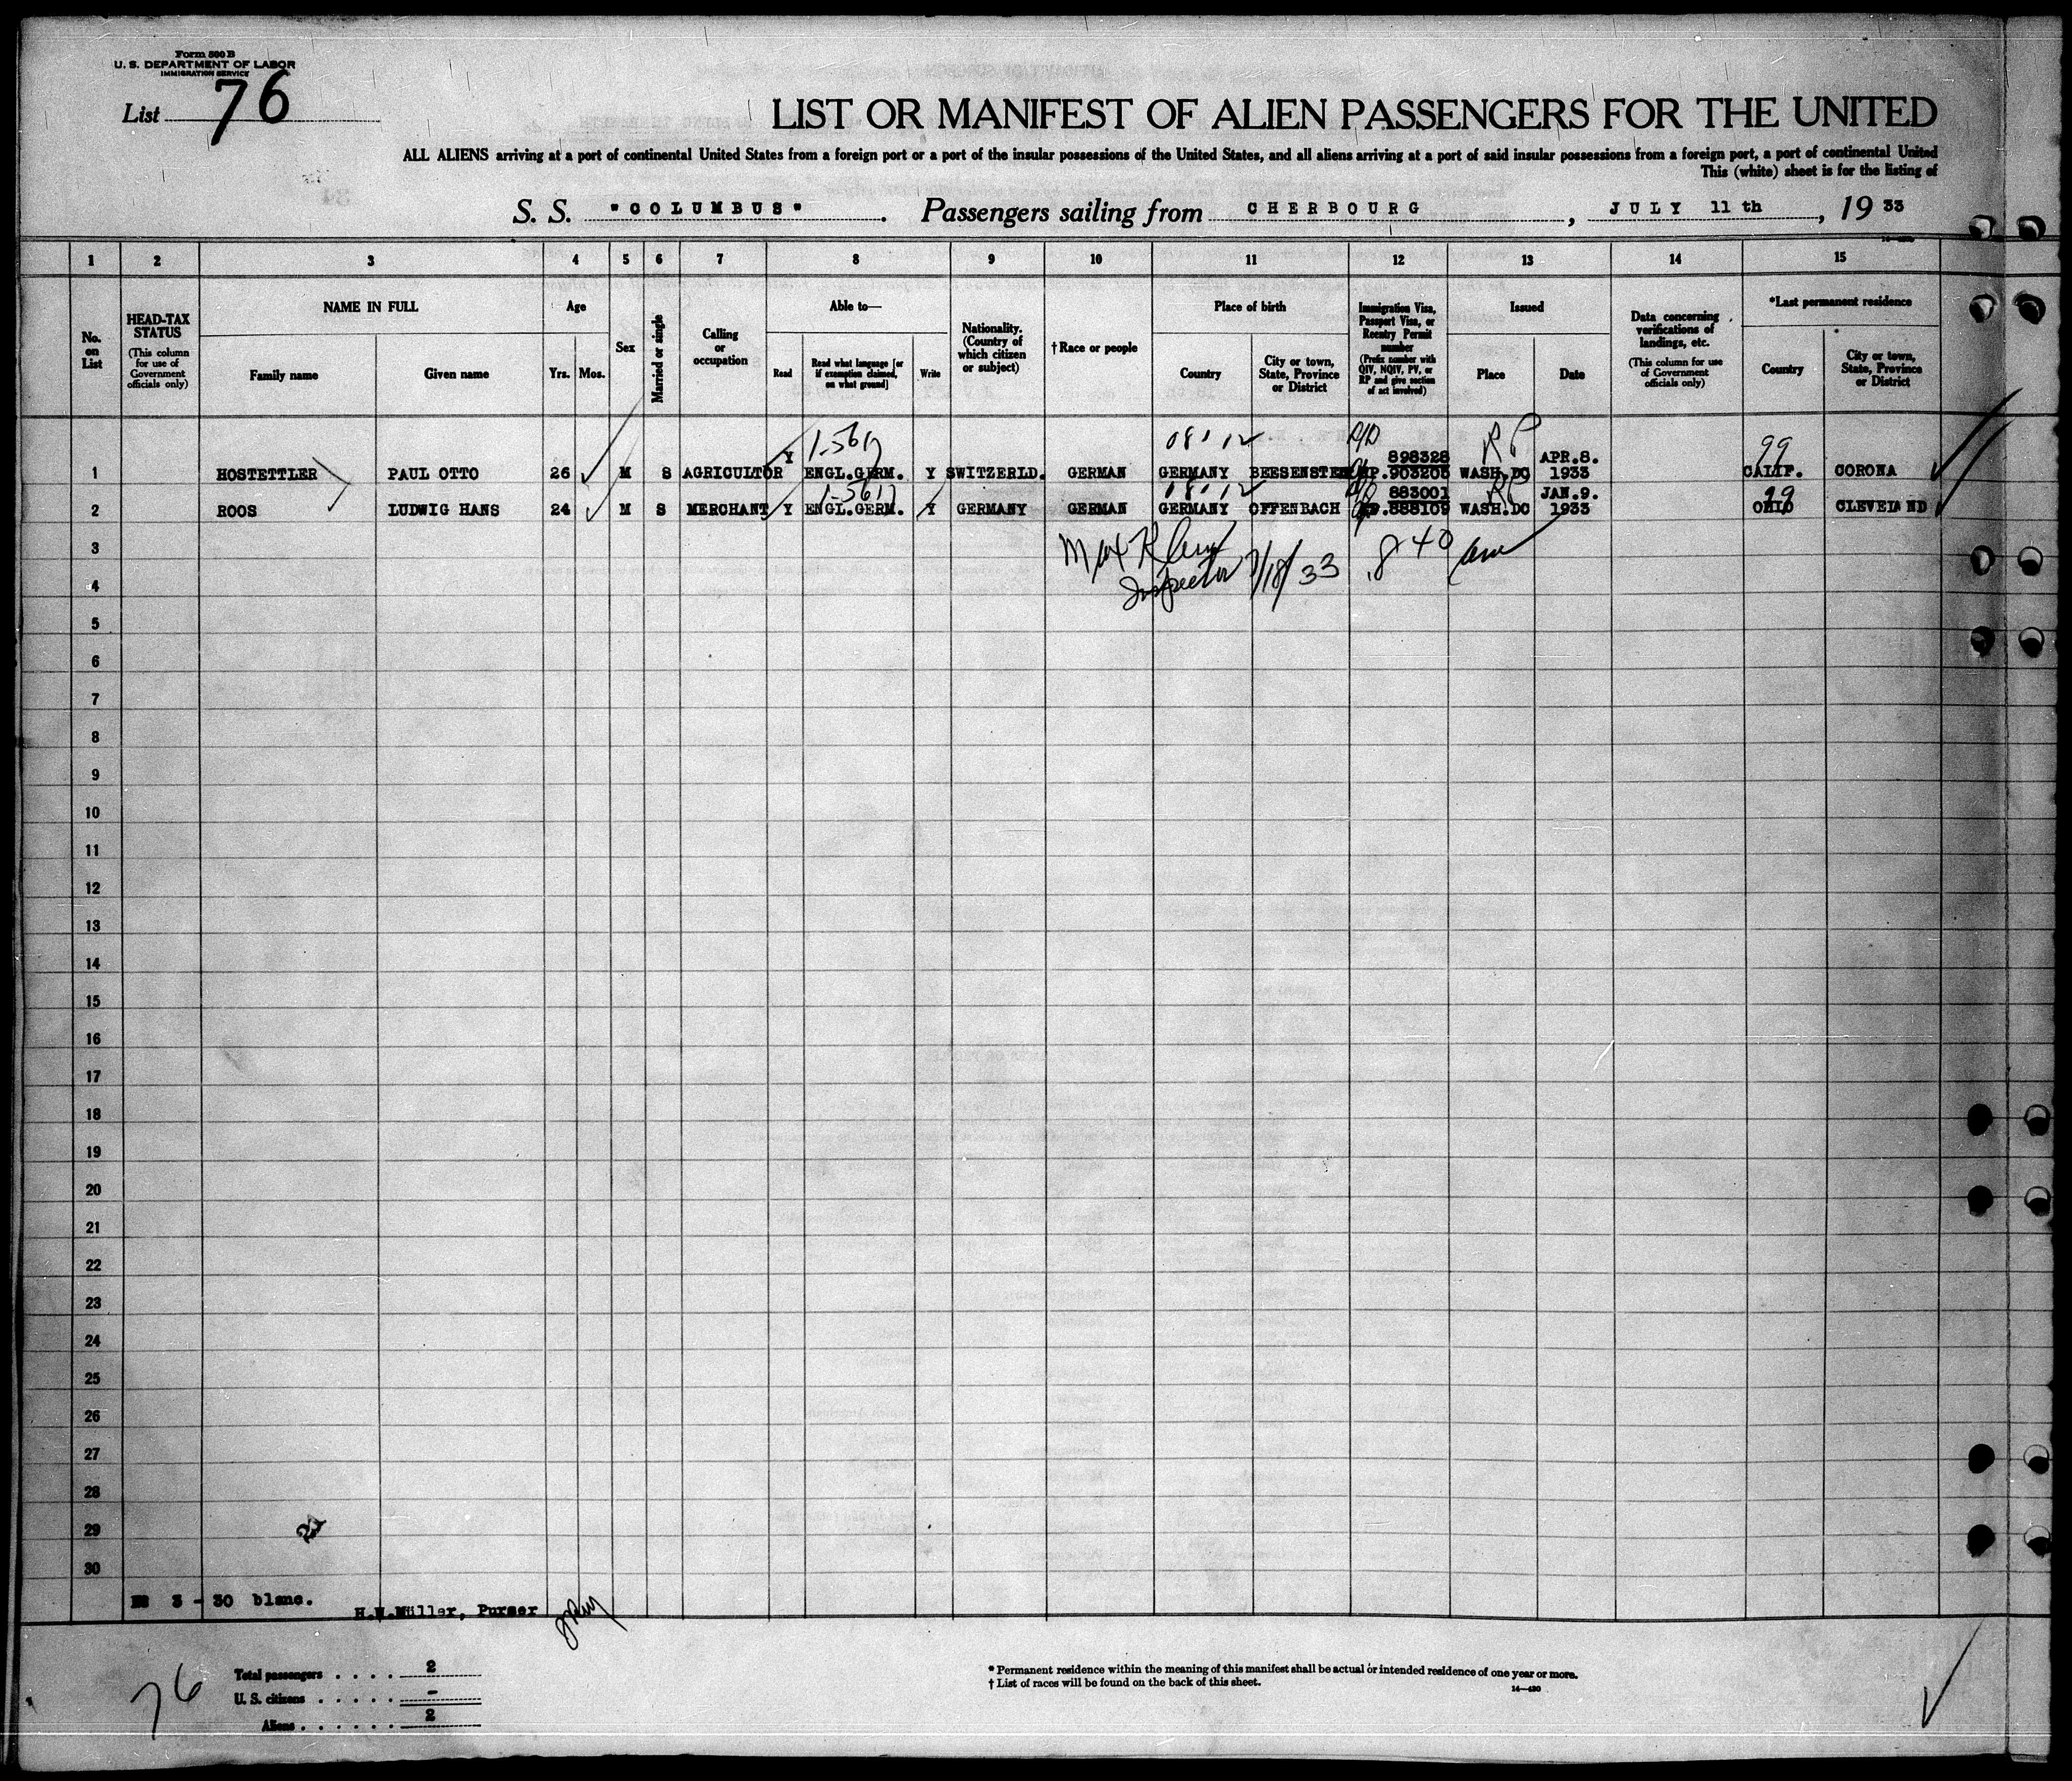 Form 500 B
U. S. DEPARTMENT OF LABOR
IMMIGRATION SERVICE
List 76
LIST OR MANIFEST OF ALIEN PASSENGERS FOR THE UNITED
ALL ALIENS arriving at a port of continental United States from a foreign port or a port of the insular possessions of the United States, and all aliens arriving at a port of said insular possessions from a foreign port, a port of continental United
This (white) sheet is for the listing of
S. S. "COLUMBUS". Passengers sailing from CHERBOURG, JULY 11 th, 19 33
1 2 3 4 5 6 7 8 9 10 11 12 13 14 15
No. on List
HEAD-TAX STATUS
(This column for use of Government officials only)
NAME IN FULL
Family name
Given name
Age
Yrs. Mos.
Sex
Married or single
Calling or occupation
Able to—
Read
Read what language [or if exemption claimed, on what ground]
Write
Nationality. (Country of which citizen or subject)
†Race or people
Place of birth
Country
City or town, State, Province or District
Immigration Visa, Passport Visa, or Reentry Permit number
(Prefix number with QIV, NQIV, PV, or RP and give section of act involved)
Issued
Place
Date
Data concerning verifications of landings, etc.
(This column for use of Government officials only)
*Last permanent residence
Country
City or town, State, Province or District
898328 RP APR.8. 99
1 HOSTETTLER PAUL OTTO 26 M S AGRICULTOR Y ENGL.GERM. Y SWITZERLD. GERMAN GERMANY BEESENSTEDT 903203 WASH.DC 1933 CALIF. CORONA
883001 RP JAN.9. 99
2 ROOS LUDWIG HANS 24 M S MERCHANT Y ENGL.GERM. Y GERMANY GERMAN GERMANY OFFENBACH 888109 WASH.DC 1933 OHIO CLEVELAND
3
Inspector 7/18/33 8 40 am
4
5
6
7
8
9
10
11
12
13
14
15
16
17
18
19
20
21
22
23
24
25
26
27
28
29
30
3 - 30 blanc.
H.W.Müller, Purser
76
Total passengers . . . . 2
U. S. citizens . . . . . -
Aliens . . . . . . 2
* Permanent residence within the meaning of this manifest shall be actual or intended residence of one year or more.
† List of races will be found on the back of this sheet.
14—420